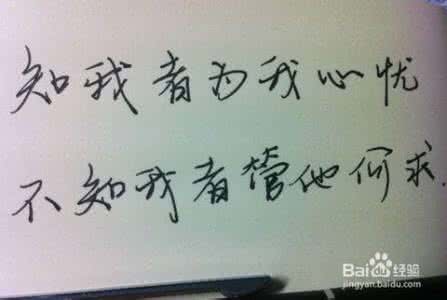 知我者为我心忧
不知我者管他何求.
Bai du 经验
jingyan.baidu.com